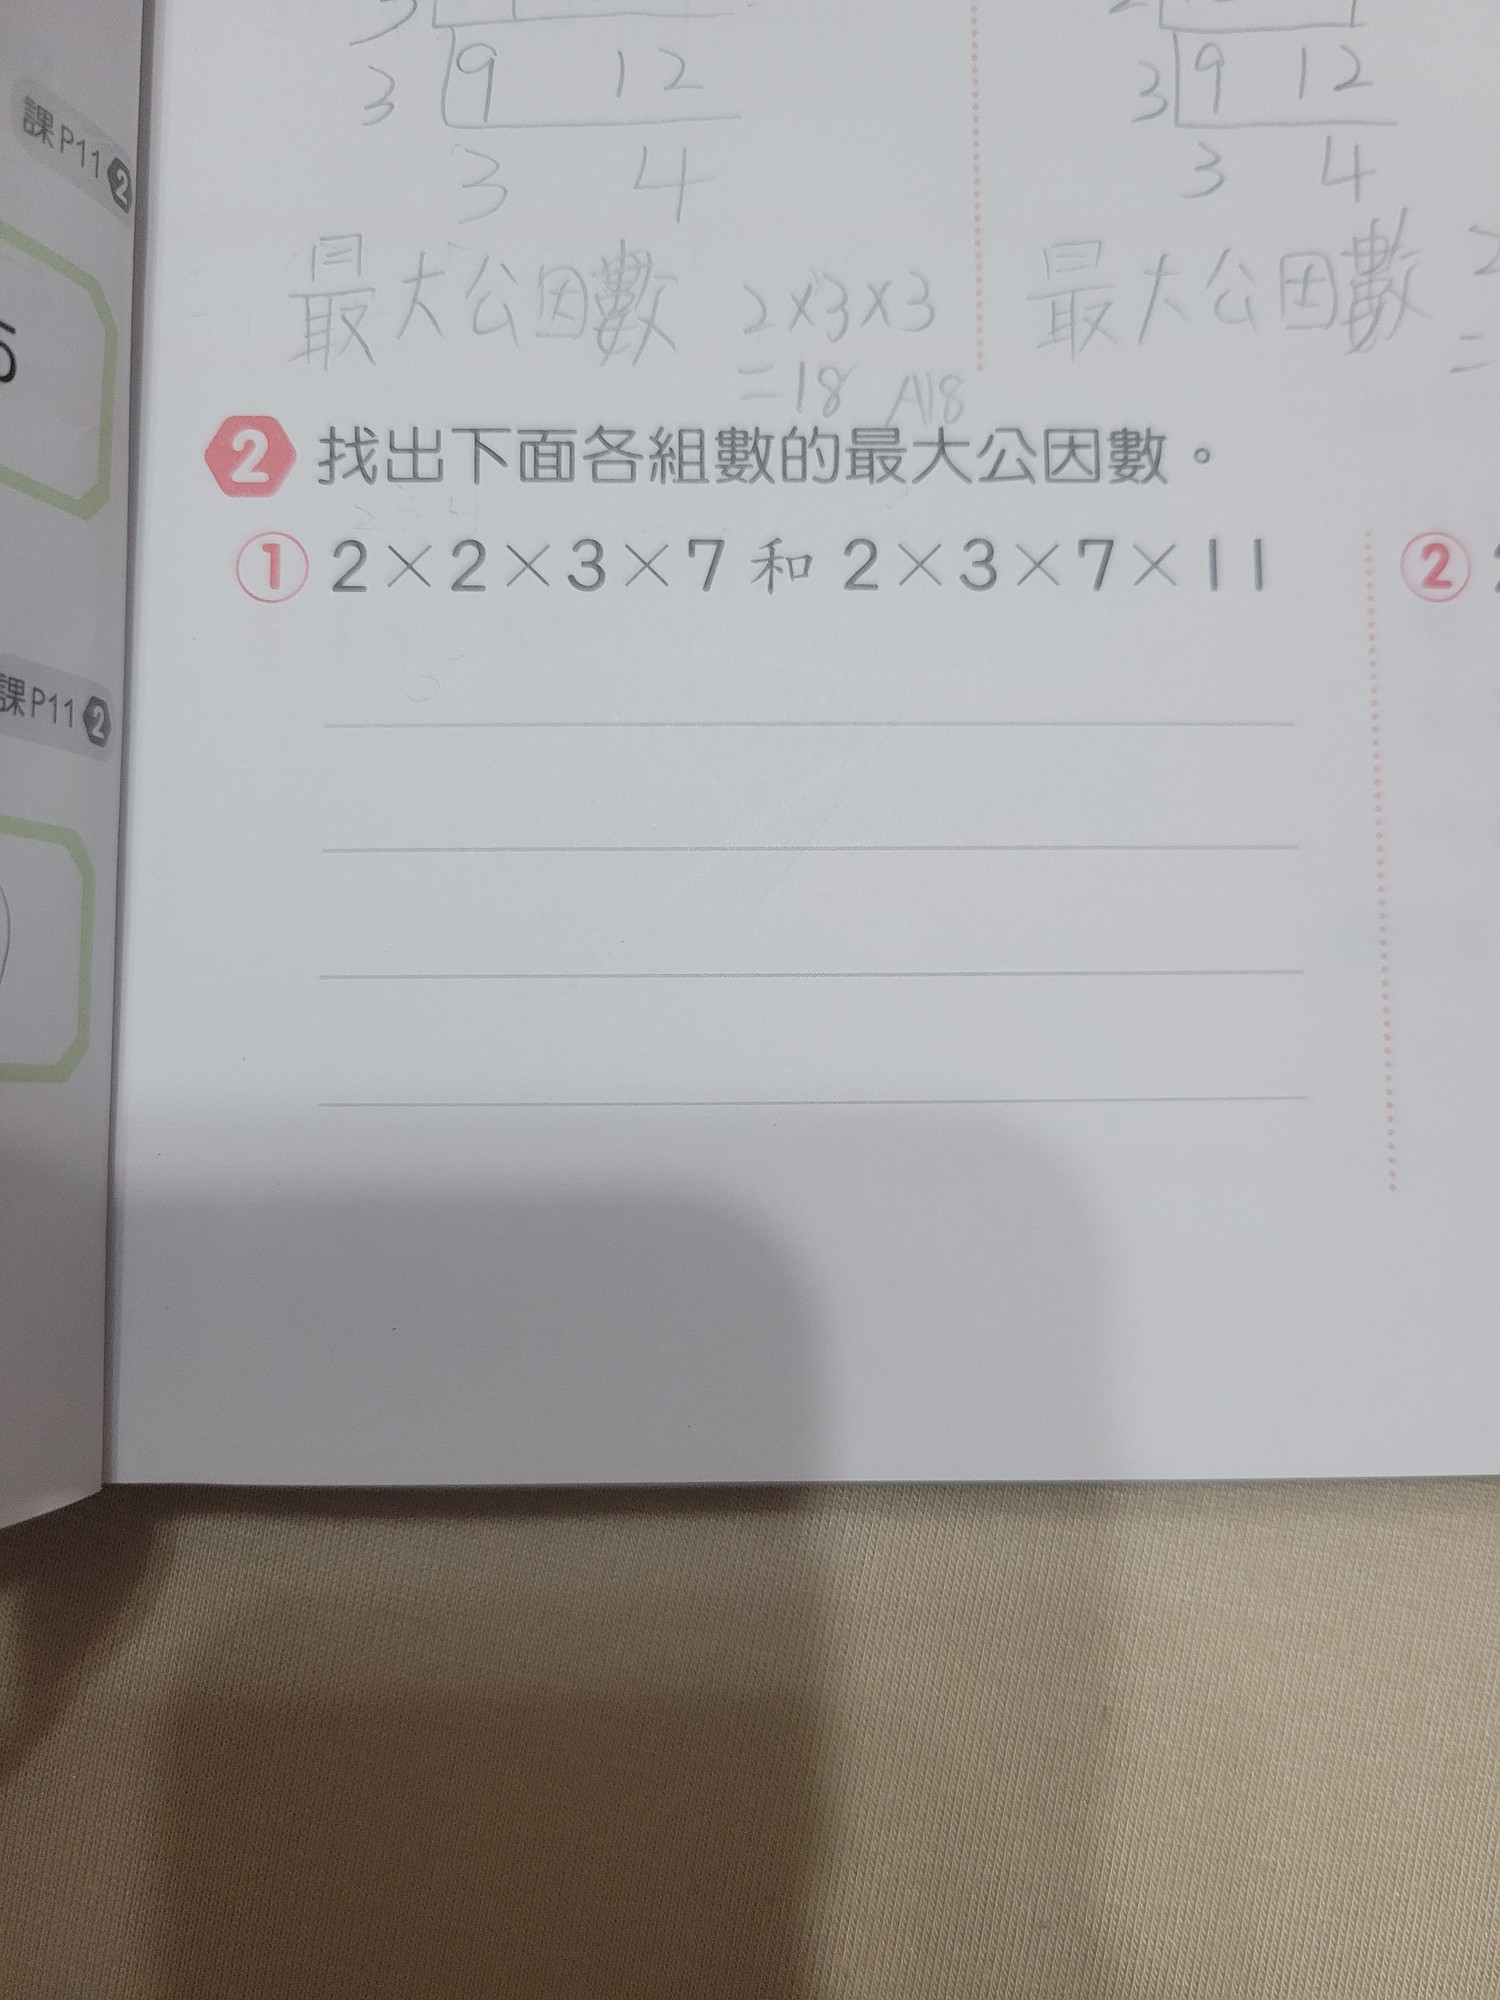 3 9 12
3 4
最大公因數 2×3×3
=18 A18
3 9 12
3 4
最大公因數
課P11 2
課P11 2
2 找出下面各組數的最大公因數。
① 2×2×3×7 和 2×3×7×11
②